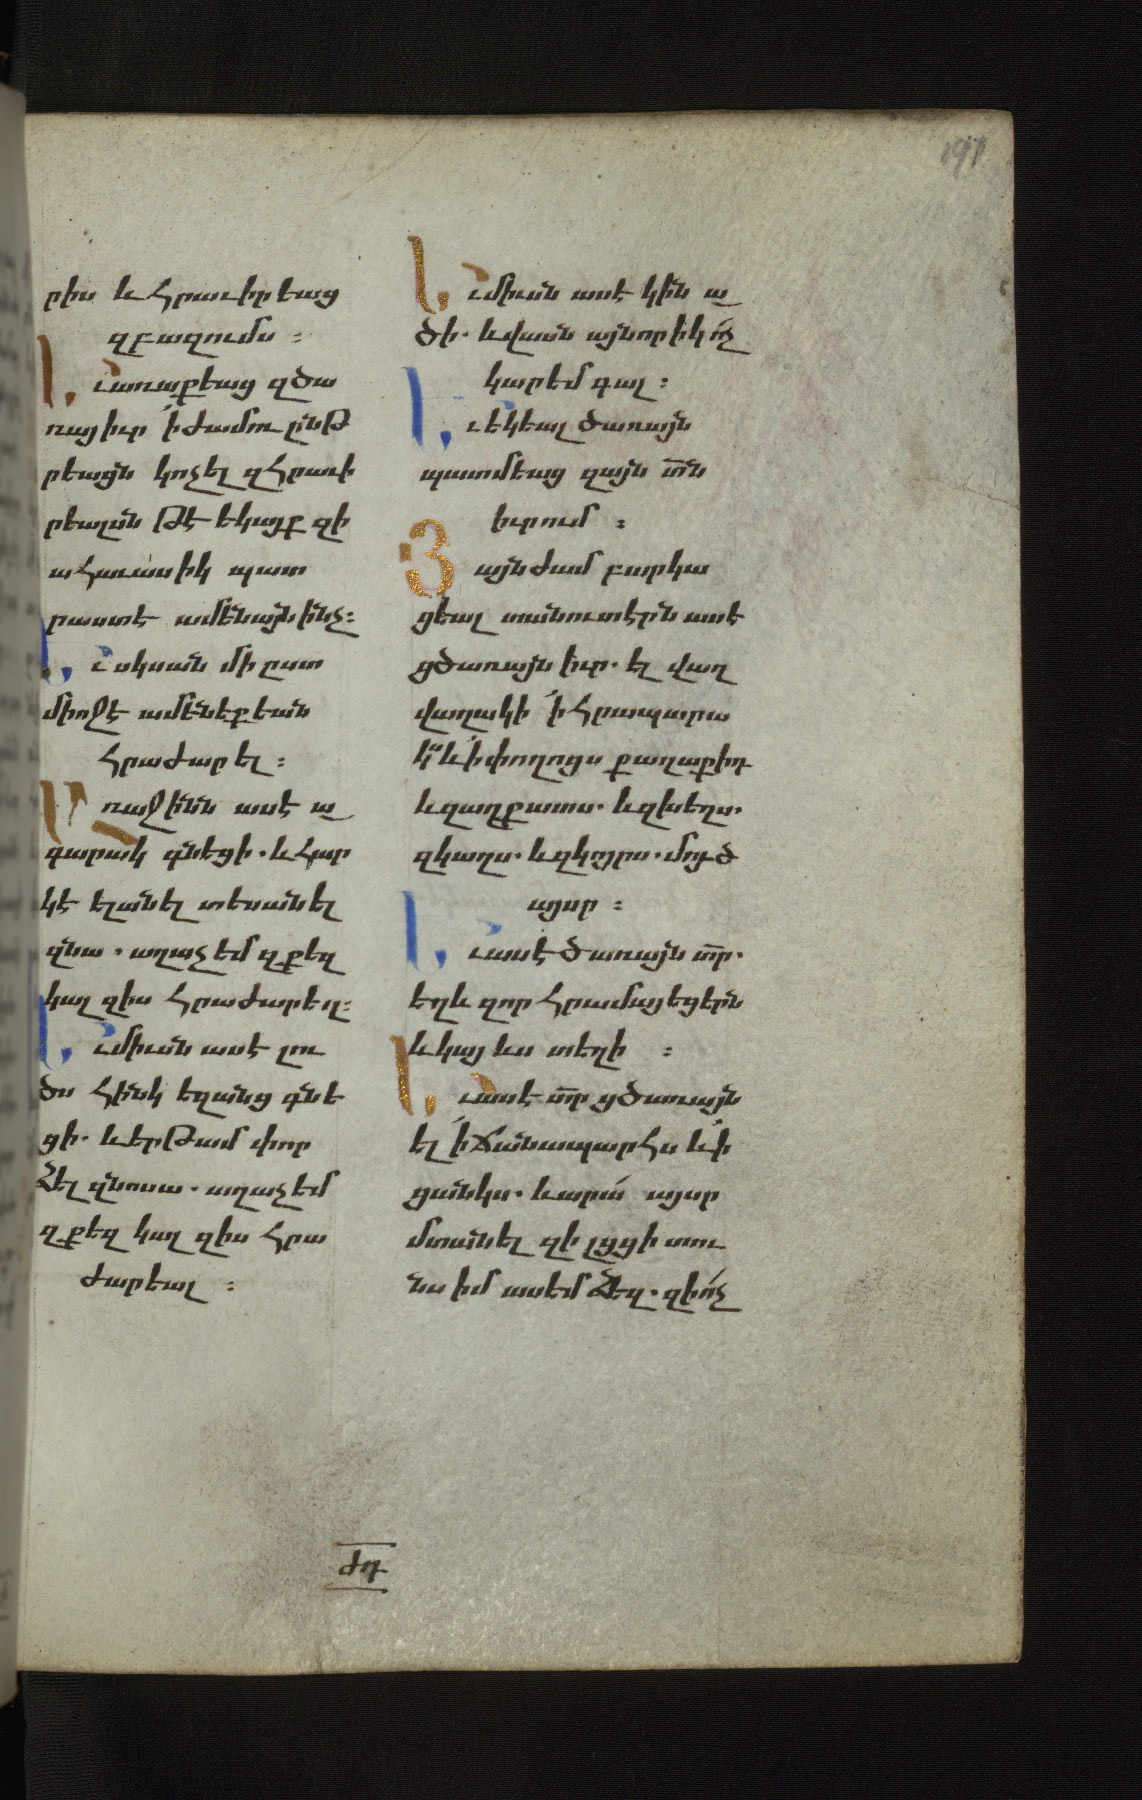 191
րիս և հրաւիրեաց
զբազումս ։
Եւ առաքեաց զծա
ռայ իւր ՛ի ժամու ընթ
րեացն կոչել զհրաւի
րեալսն թէ եկայք զի
ահաւասիկ պատ
րաստէ ամենայն ինչ։
Եւ սկսան մի ըստ
միոջէ ամենեքեան
հրաժարել ։
Առաջինն ասէ ա
գարակ գնեցի . և հար
կէ ելանել տեսանել
զնա . աղաչեմ զքեզ
կալ զիս հրաժարեալ։
Եւ միւսն ասէ լու
ծս հինգ եզանց գնե
ցի . և երթամ փոր
ձել զնոսա . աղաչեմ
զքեզ կալ զիս հրա
ժարեալ ։
Եւ միւսն ասէ կին ա
ծի . և վասն այնորիկ ո՛չ
կարեմ գալ ։
Եւ եկեալ ծառայն
պատմեաց զայն տն
իւրում ։
Յայնժամ բարկա
ցեալ տանուտէրն ասէ
ցծառայն իւր . ել վաղ
վաղակի ՛ի հրապարա
կս և ՛ի փողոցս քաղաքիդ
և զաղքատս . և զխեղս .
զկաղս . և զկոյրս . մոյծ
այսր ։
Եւ ասէ ծառայն տր .
եղև զոր հրամայեցերն
և կայ ևս տեղի ։
Եւ ասէ տր ցծառայն
ել ՛ի ճանապարհս և ՛ի
ցանկս . և արա՛ այսր
մտանել զի լցցի տու
նս իմ ասեմ ձեզ . զի ո՛չ
ԺԴ